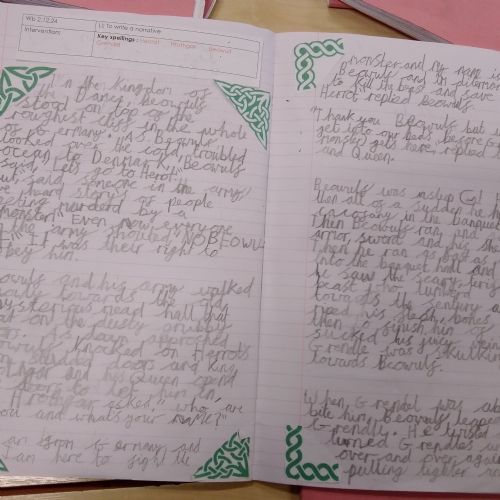 Wb 2.12.24
LI: to write a narrative
Interventions
Key spellings: Heorot Hrothgar Beowulf
Grendel
In the Kingdom of
the Danes, beowulf
stood on top of the
roughest cliff in the whole
of Germany. As Beowulf
looked over the cold, troubled
ocean to Denmark, Beowulf
said, "Let's go to Herot"
but someone in the army
heard stories of people
getting murderd by a
monster" Even now everyone
the army shouted "NO BEOWU
It was their right to
bey him.
owulf and his army walked
towards the old,
mysterious mead hall that
at on the dusty grubby
As dawn approched
owulf knocked on Herrots
doors and King
thgar and his Queen opend
doors to let him in
Hrothgar asked, "who are
ou and whats your name?"
am from Germany and
I am here to fight the
monster and my name is
Beowulf and
to kill the beast and save
Herrot replied Beowulf.
"Thank you Beowulf but
get into our beds before
monster gets here, replied
and Queen.
Beowulf was aslep
then all of a sudden he
in the banquet
then Beowulf ran and
armor sword and his
Then he ran as fast as
into the banquet hall and
he saw the scary, terif
beast who lunkerd
towards the century a
flesh, bones
then to finish him of
sucked his juicy veins
rendle was skulkin
towards Beowulf.
When Grendel was abo
bite him, Beowulf leaped
Grendel. He twisted
turned Grendles
over and over again
pulling tighter